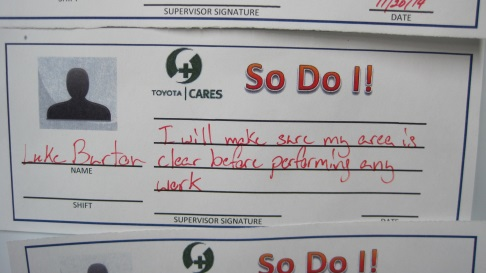 SHIFT
SUPERVISOR SIGNATURE
11/30/19
DATE
TOYOTA | CARES
So Do I!
Luke Burton
NAME
SHIFT
I will make sure my area is
clear before performing any
work
SUPERVISOR SIGNATURE
DATE
So Do I!